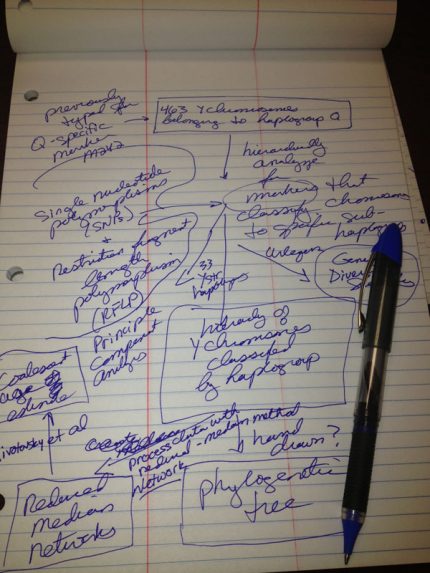 previously
typed for
Q-specific
marker
M242
463 Y chromosomes
belonging to haplogroup Q
hierarchically
analyze
for
markers that
classify chromosomes
to specific sub-
Single nucleotide
polymorphisms
(SNPs)
+
Restriction fragment
length
polymorphism
(RFLP)
Principle
Component
Analysis
33
haplogps
Arlequin
Hierachy of
Y Chromosomes
classified
by haplogroup
Coalescent
age
estimate
et al
process data with
reduced-median method
Network
hand
drawn?
Reduced
Median
networks
phylogenetic
tree